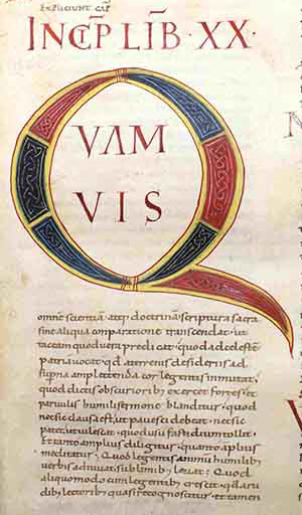 EXPLICIUNT CAP̄
INCP̄ LIB̄ · XX ·
Q
VAM
VIS
omnē scientiā atq; doctrinā scriptura sacra
sine aliqua comparatione transcendat · ut
taceam quod vera predicat · quod ad celestē
patria vocat · qd̄ a terrenis desideriis ad
supna amplectenda cor legentis immutat ·
quod dictis obscuriorib; exercet fortes · et
parvulis humili sermone blanditur · quod
nec sic clausa est ut pavesci debeat · nec sic
patet ut vilescat · quod usu fastidium tollit ·
Et tanto amplius diligitur · quanto aplius
meditatur · Quod legentis animū humilib;
verbis adiuvat · sublimib; levat · Quod
aliquo modo cum legentib; crescit · qd̄ a ru
dib; lectorib; quasi recognoscitur · et tamen
N